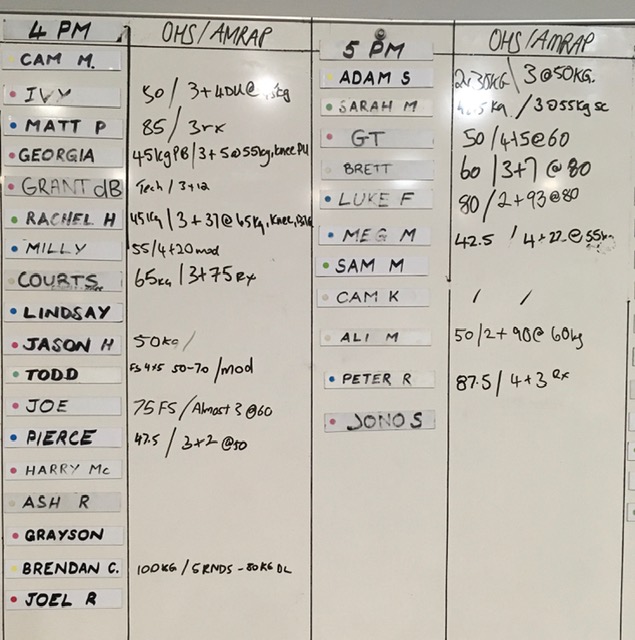 4 PM OHS/AMRAP
CAM M.
IVY 50 / 3+40U@
MATT P 85 / 3rx
GEORGIA 45kgPB/3+5@55kg, Knee PU
GRANT dB Tech / 3+12
RACHEL H 45kg / 3+37@65kg, Knee,
MILLY 55/4+20mod
COURTS 65kg / 3+75Rx
LINDSAY
JASON H 50kg /
TODD FS 4x5 50-70 / mod
JOE 75FS / Almost 3@60
PIERCE 47.5 / 3+2 @50
HARRY Mc
ASH R
GRAYSON
BRENDAN C. 100KG / 5RNDS - 80KG DL
JOEL R
5 PM OHS/AMRAP
ADAM S 3@50KG.
SARAH M kg / 3@55kg sc
GT 50/4+5@60
BRETT 60 / 3+7 @80
LUKE F 80/2+93@80
MEG M 42.5 / 4+22@55kg
SAM M
CAM K / /
ALI M 50/2+90@60kg
PETER R 87.5 / 4+3 Rx
JONO S